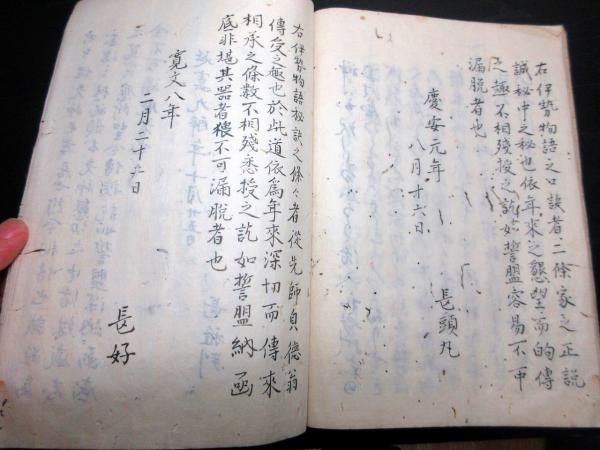 右伊勢物語之口訣者二條家之正説
誠秘中之秘也依年來之懇望而的傳
之趣不相殘授之訖如誓盟容易不可
漏脱者也
慶安元年
八月十六日
長頭丸
右伊勢物語秘訣之條々者從先師貞德翁
傳受之趣也於此道依爲年來深切而傳來
相承之條數不相殘悉授之訖如誓盟納函
底非堪其器者猥不可漏脱者也
寛文八年
二月二十六日
長好